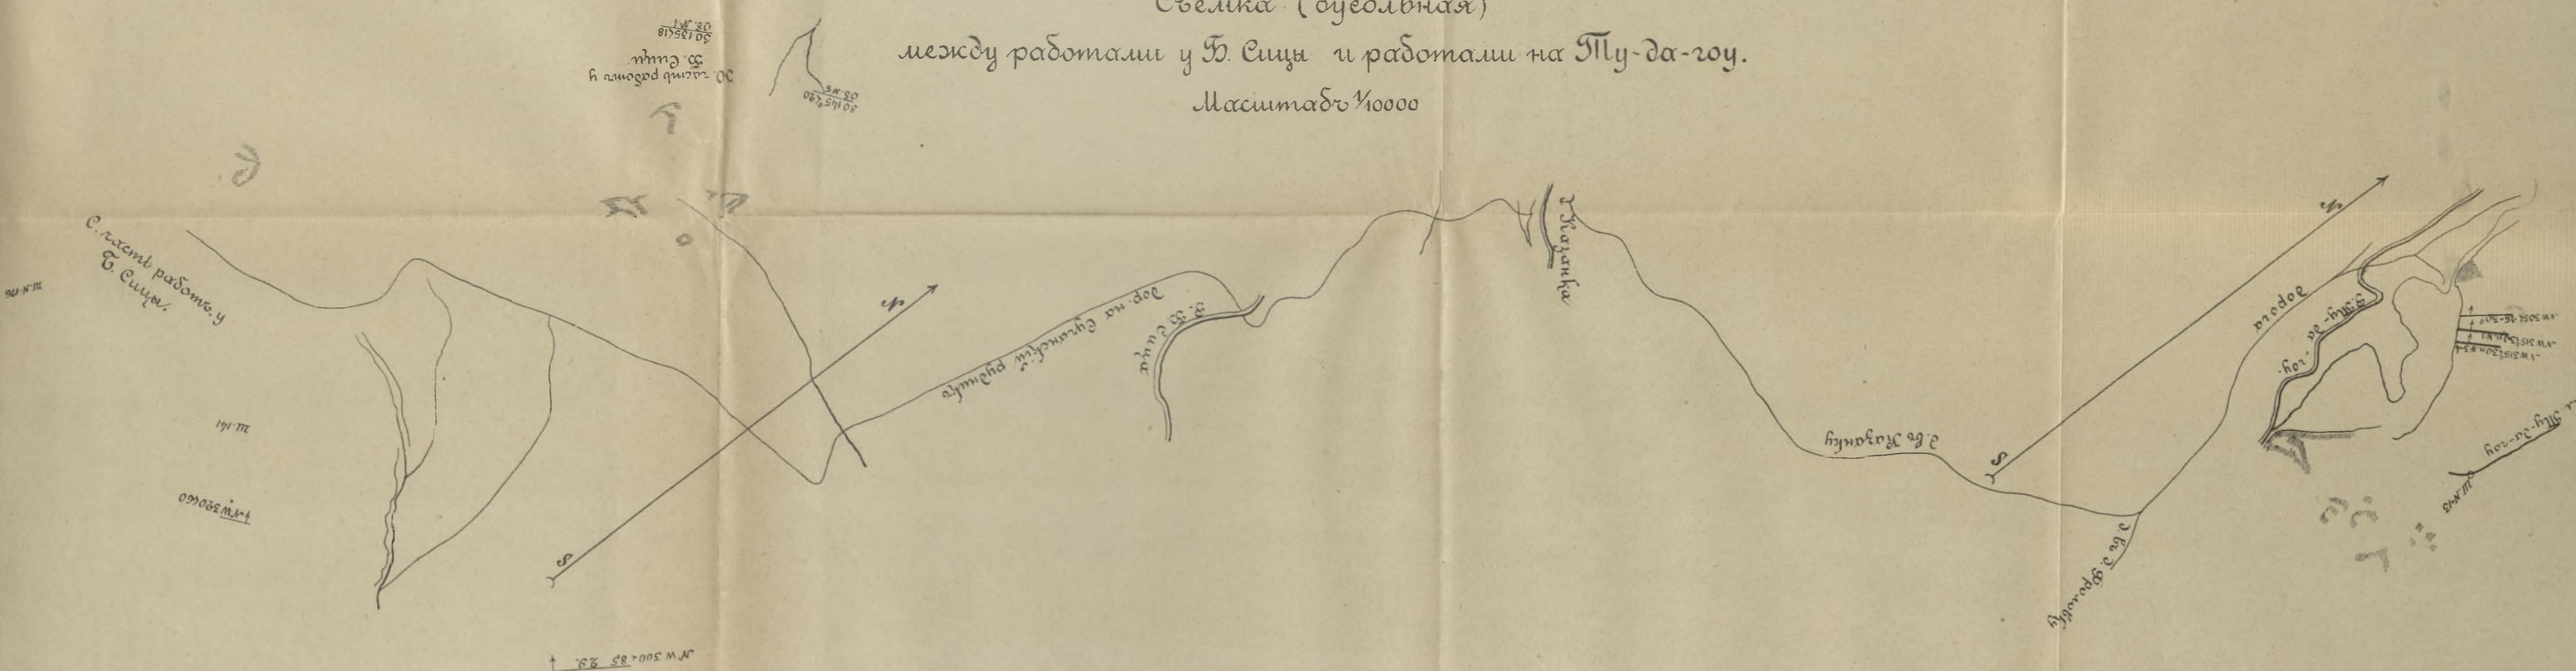 Съемка (бусольная)
между работами у Б. Сицы и работами на Ту-да-гоу.
Масштабъ 1/10000
SO 135∠18
Ю. часть работъ у
Б. Сицы
SO 145°∠20
С. часть работъ у
Б. Сицы.
Ш. N 176
Ш. 141
NW 320∠60
N
S
дор. на Сучанскій рудникъ
Р. Б. Сица
д. Казанка
д. въ Казанку
N
S
дорога
Р. Ту-да-гоу.
д. въ д. Фроловку
Ту-да-гоу
Ш. N 13
NW 300∠85 29.